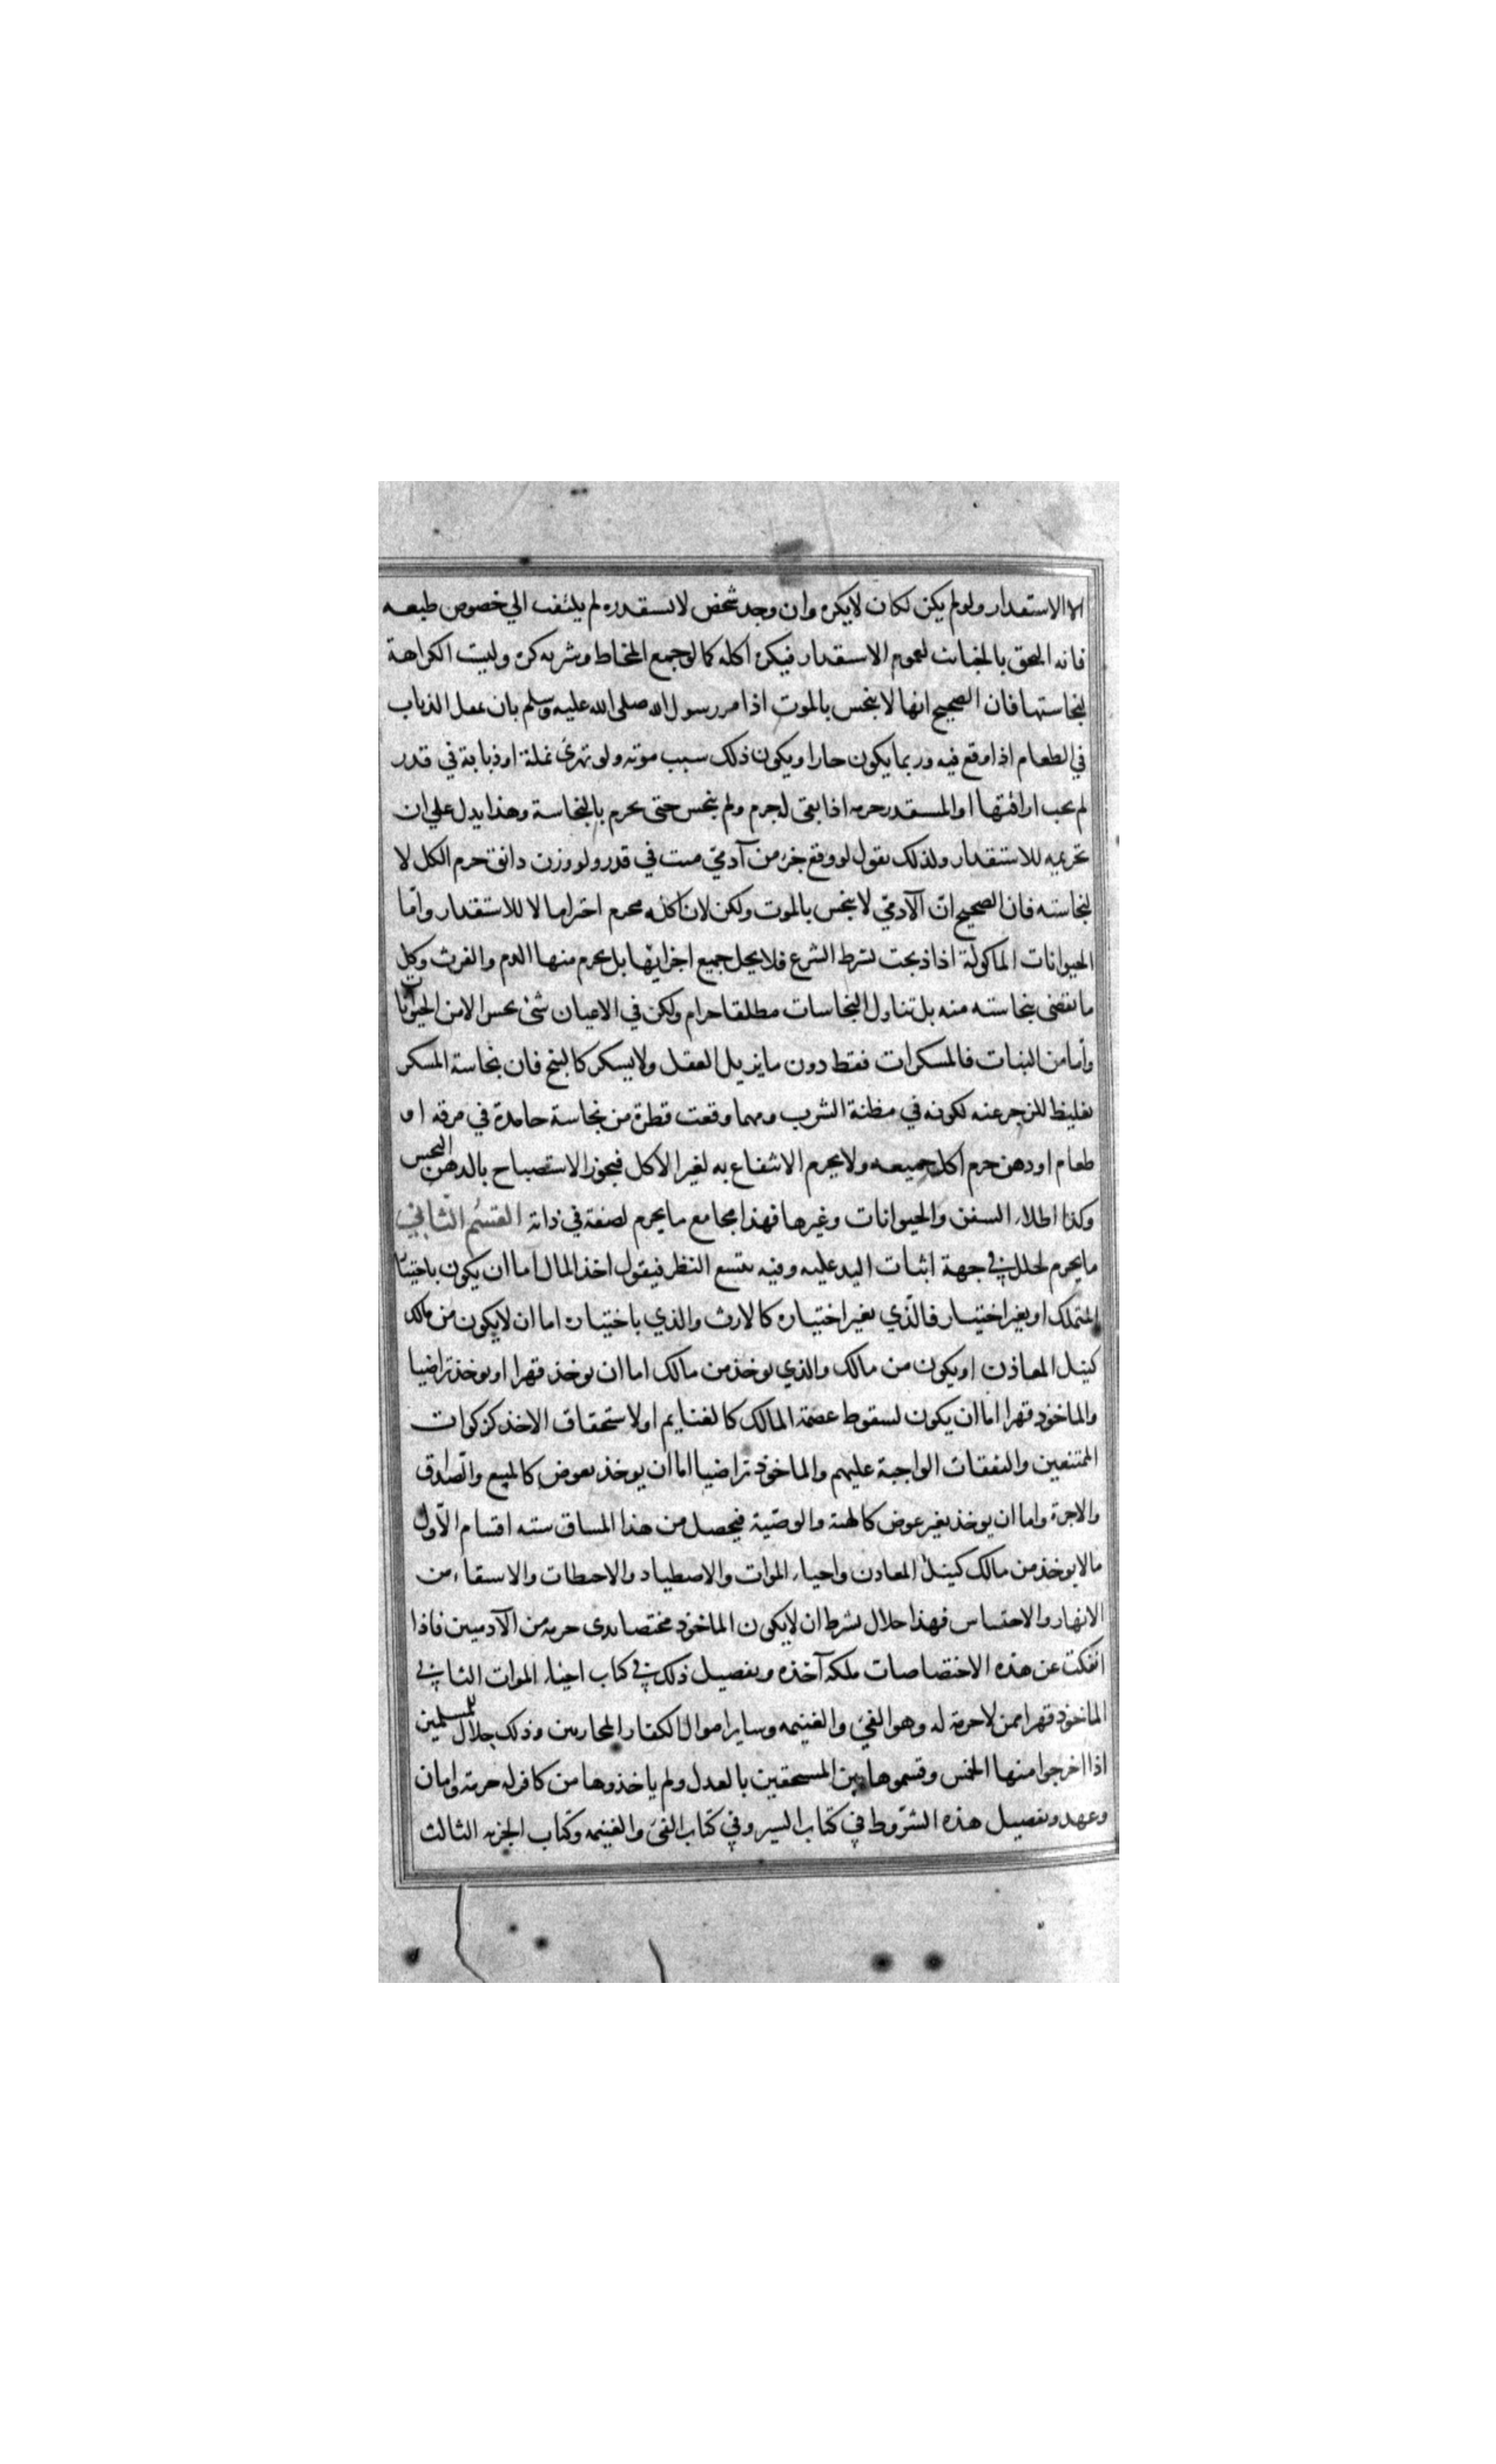 الا الاستقذار ولو لم يكن لكان لا يكره وان وجد شخص لا يستقذره لم يلتفت الي خصوص طبعه
فانه التحق بالخبائث لعموم الاستقذار فيكره اكله كما لو جمع المخاط وشربه كره وليست الكراهة
لنجاستها فان الصحيح انها لا ينجس بالموت اذ امر رسول الله صلى الله عليه وسلم بان يمقل الذباب
في الطعام اذا وقع فيه وربما يكون حارا ويكون ذلك سبب موته ولو تهرئ نملة او ذبابة في قدر
لم يجب اراقتها اذ المستقذر جرمه اذا بقي له جرم ولم ينجس حتى يحرم بالنجاسة وهذا يدل علي ان
تحريمه للاستقذار ولذلك نقول لو وقع جزء من آدمي ميت في قدر ولو وزن دانق حرم الكل لا
لنجاسته فان الصحيح ان الآدمي لا ينجس بالموت ولكن لان اكله محرم احتراما لا للاستقذار واما
الحيوانات الماكولة اذا ذبحت بشرط الشرع فلا يحل جميع اجزائها بل يحرم منها الدم والفرث وكل
ما يقضى بنجاسته منه بل تناول النجاسات مطلقا حرام ولكن في الاعيان شئ نجس الا من الحيوانات
وأما من النبات فالمسكرات فقط دون ما يزيل العقل ولا يسكر كالبنج فان نجاسة المسكر
تغليظ للزجر عنه لكونه في مظنة الشرب ومهما وقعت قطرة من نجاسة جامدة في مرقه او
طعام او دهن حرم اكل جميعه ولا يحرم الانتفاع به لغير الاكل فيجوز الاستصباح بالدهن النجس
وكذا اطلاء السفن والحيوانات وغيرها فهذا مجامع ما يحرم لصفة في ذاته القسم الثاني
ما يحرم لخلل في جهة اثبات اليد عليه وفيه يتسع النظر فيقول اخذ المال اما ان يكون باختيار
المتملك او بغير اختيار فالذي بغير اختياره كالارث والذي باختياره اما ان لا يكون من مالك
كنيل المعادن او يكون من مالك والذي يوخذ من مالك اما ان يوخذ قهرا او يوخذ تراضيا
والماخوذ قهرا اما ان يكون لسقوط عصمة المالك كالغنايم او لاستحقاق الاخذ كزكوات
الممتنعين والنفقات الواجبة عليهم والماخوذ تراضيا اما ان يوخذ بعوض كالبيع والصداق
والاجرة واما ان يوخذ بغير عوض كالهبة والوصية فيحصل من هذا المساق ستة اقسام الأول
ما لا يوخذ من مالك كنيل المعادن واحياء الموات والاصطياد والاحطاب والاستقاء من
الانهار والاحتساس فهذا حلال بشرط ان لا يكون الماخوذ مختصا بذى حرمة من الآدميين فاذا
انفكت عن هذه الاختصاصات ملكه آخذه وتفصيل ذلك في كتاب احياء الموات الثاني
الماخوذ قهرا ممن لا حرمة له وهو الفئ والغنيمه وساير اموال الكفار المحاربين وذلك حلال للمسلمين
اذا اخرجوا منها الخمس وقسموها بين المستحقين بالعدل ولم ياخذوها من كافر له حرمة وامان
وعهد وتفصيل هذه الشروط في كتاب السير وفي كتاب الفئ والغنيمه وكتاب الجزيه الثالث